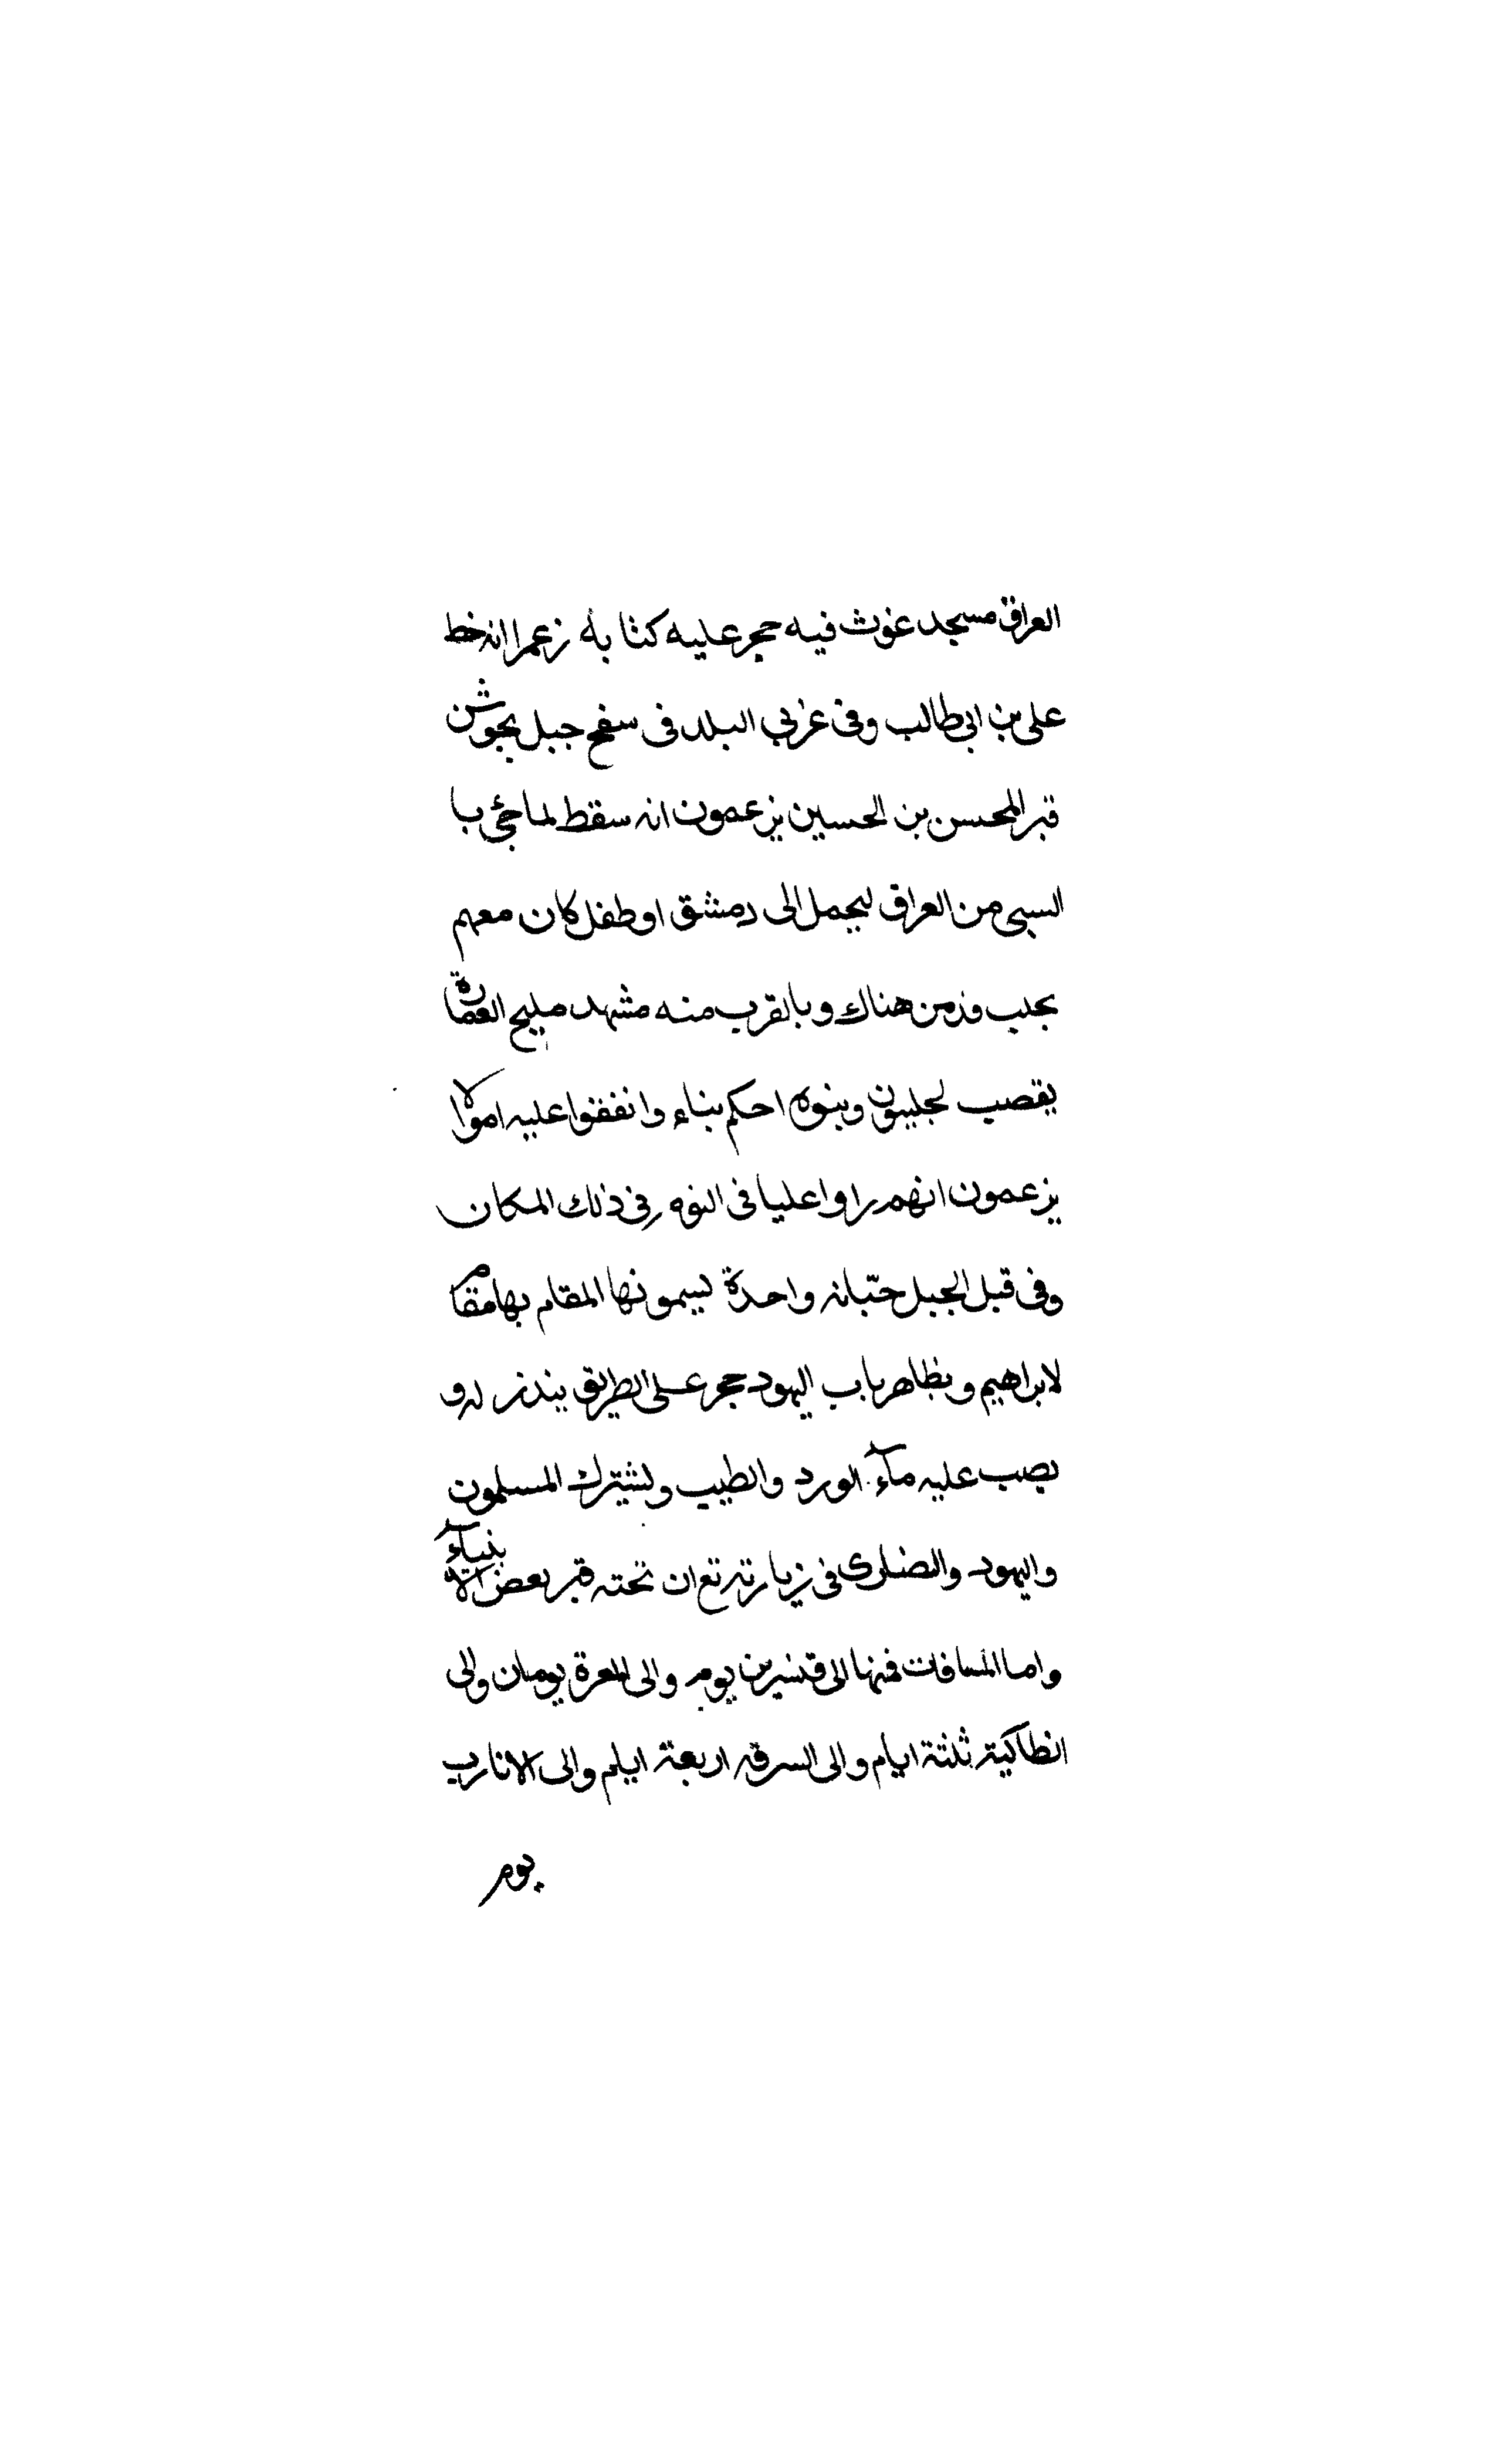 العراق مسجد غوث فيه حجر عليه كتابة زعموا انه خط
على بن ابى طالب وفى غربي البلد فى سفح جبل بجوشن
قبر المحسن بن الحسين يزعمون انه سقط لما جئ با
السبى من العراق ليحمل الى دمشق او طفل كان معهم
بحلب فدمن هناك وبالقرب منه مشهد مليح العمارة
يقصب لحليبون وبنوه احكم بناء وانفقوا عليه اموالا
يزعمون انهم راوا عليا فى النوم فى ذلك المكان
وفى قبل الجبل جبّانه واحدة يسمونها المقام بها مقام
لابراهيم وبظاهر باب اليهود حجر على الطريق ينذر له و
يصب عليه مآء الورد والطيب ويشترك المسلمون
واليهود والنصارى فى زيارته تع ان تحته قبر بعض الانبيآء
واما المسافات فمنها الى قنسرين يوم والى المعرة يومان والى
انطاكية ثلثة ايام والى السرقه اربعة ايام والى الاثارب
يوم